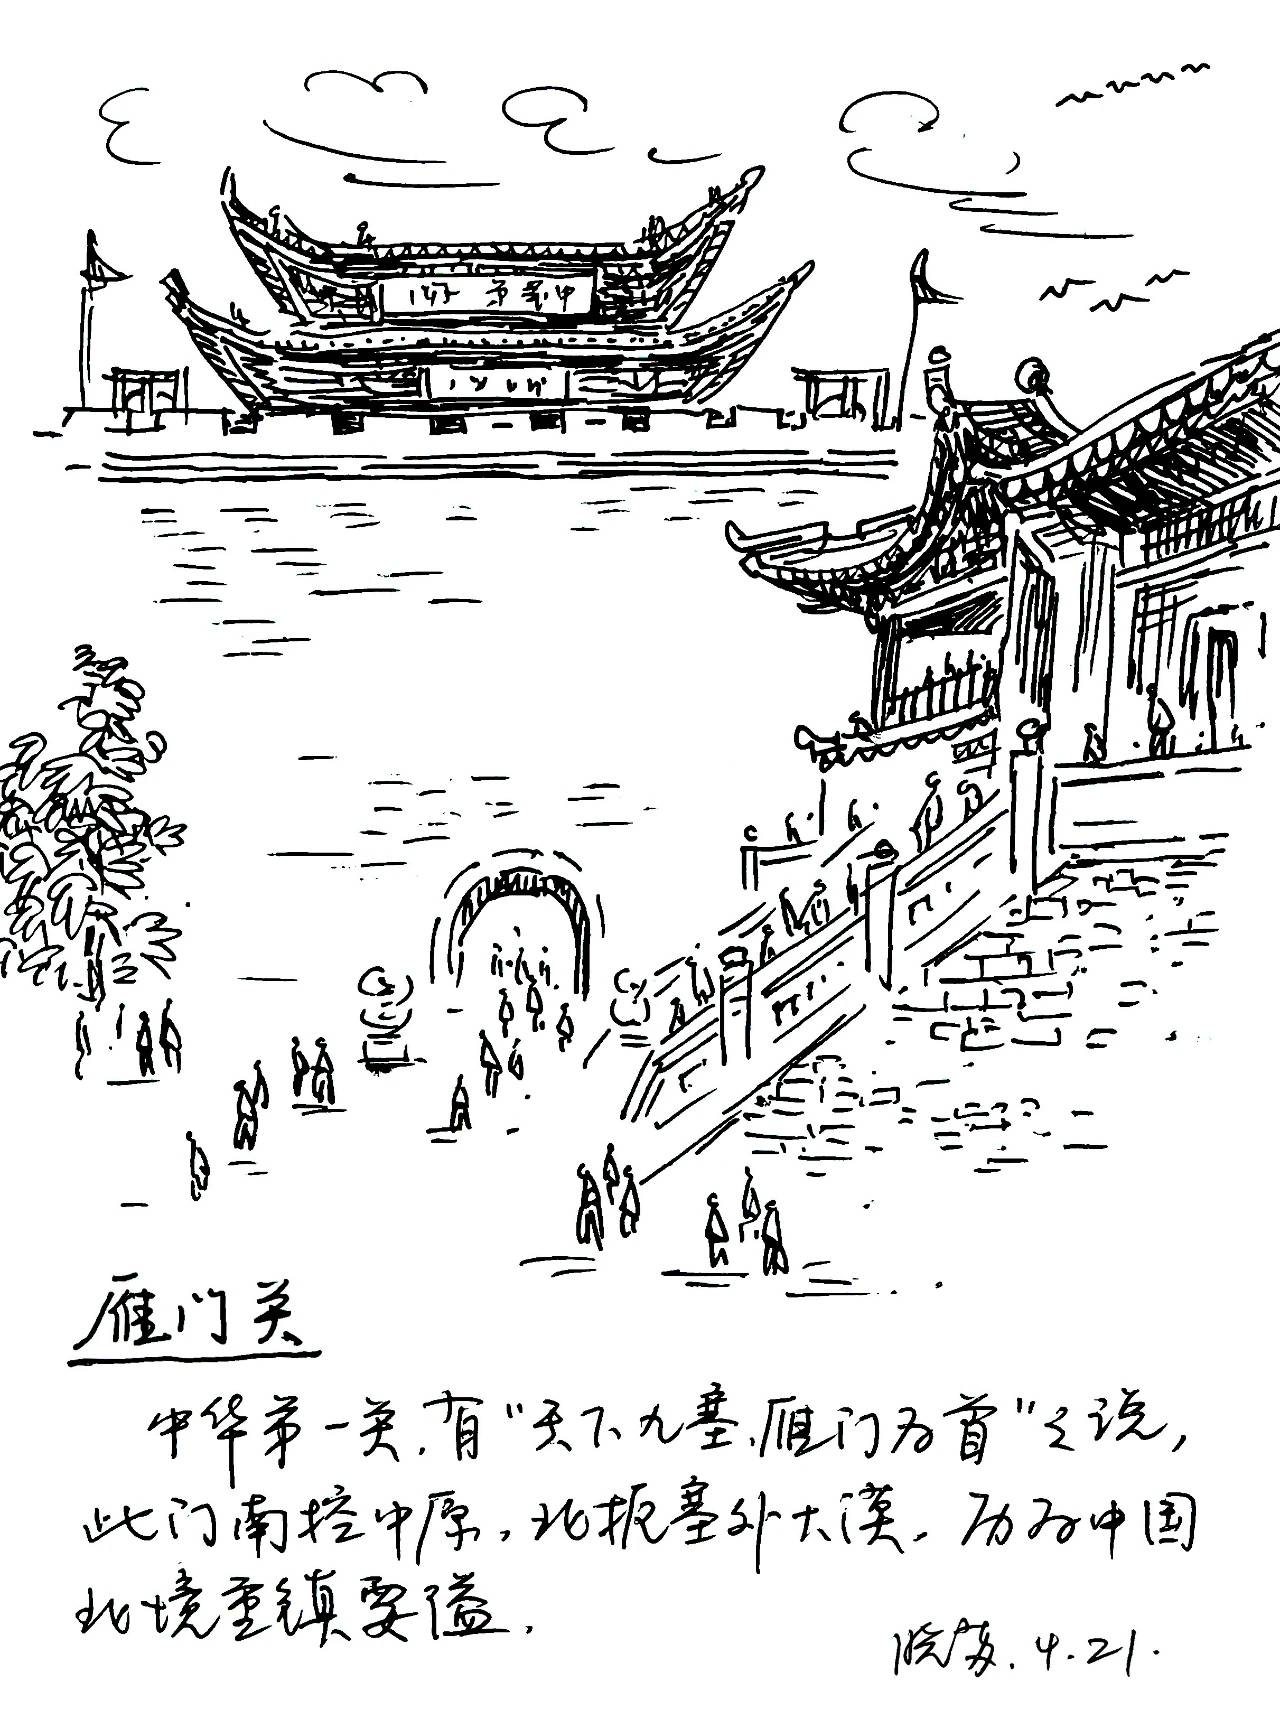 雁门关
中华第一关，有“天下九塞、雁门为首”之说，
此门南控中原，北扼塞外大漠，历为中国
北境重镇要隘．
晓苏．4.21.